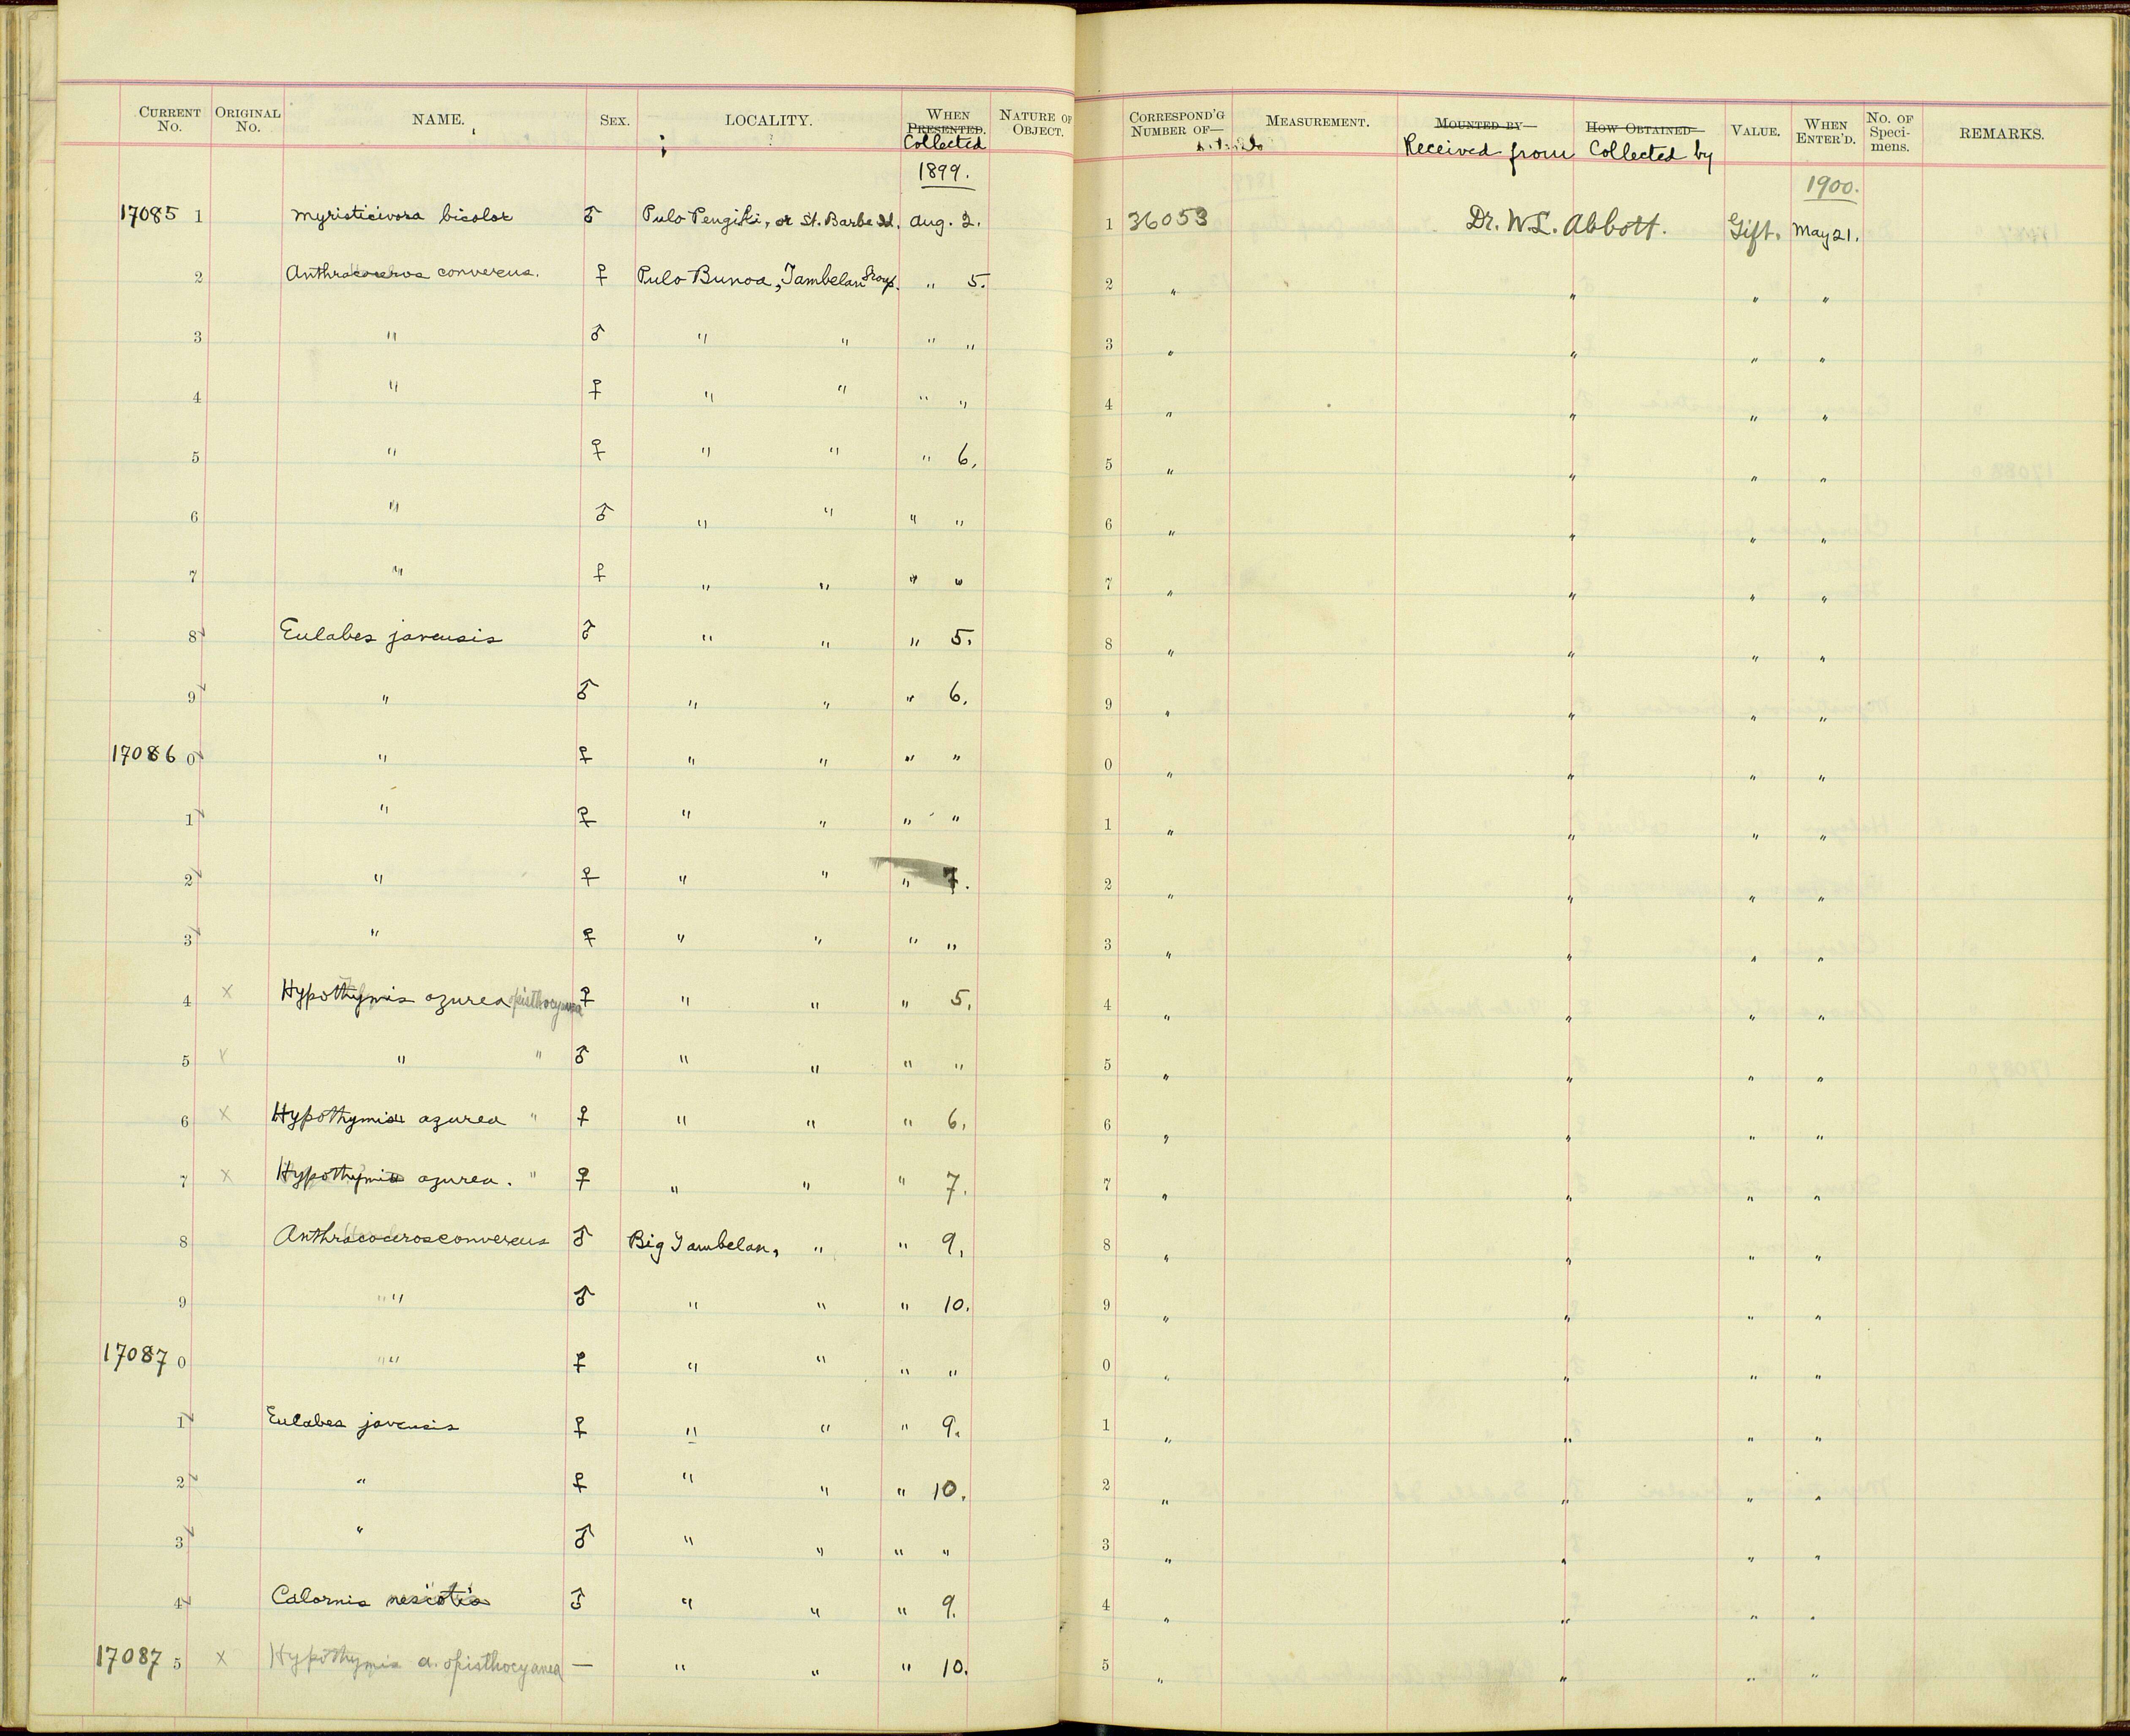 CURRENT No. ORIGINAL No. NAME. SEX. LOCALITY. WHEN PRESENTED. Collected NATURE OF OBJECT. CORRESPOND'G NUMBER OF— MEASUREMENT. MOUNTED BY— Received from HOW OBTAINED— Collected by VALUE. WHEN ENTER'D. No. OF Speci-mens. REMARKS.
1899. 1900.
17085 1 Myristicivora bicolor ♂ Pulo Pengiki, or St. Barbe Id. Aug. 2. 1 36053 Dr. W. L. Abbott. Gift. May 21.
2 Anthracoceros convexus. ♀ Pulo Bunoa, Tambelan Group. " 5. 2 " " " "
3 " ♂ " " " " 3 " " " "
4 " ♀ " " " " 4 " " " "
5 " ♀ " " " 6. 5 " " " "
6 " ♂ " " " " 6 " " " "
7 " ♀ " " " " 7 " " " "
8 Eulabes javensis ♂ " " " 5. 8 " " " "
9 " ♂ " " " 6. 9 " " " "
17086 0 " ♀ " " " " 0 " " " "
1 " ♀ " " " " 1 " " " "
2 " ♀ " " " 7. 2 " " " "
3 " ♀ " " " " 3 " " " "
4 x Hypothymis azurea opisthocyanea ♀ " " " 5. 4 " " " "
5 x " " ♂ " " " " 5 " " " "
6 x Hypothymis azurea " ♀ " " " 6. 6 " " " "
7 x Hypothymis azurea. " ♀ " " " 7. 7 " " " "
8 Anthracoceros convexus ♂ Big Tambelan, " " 9. 8 " " " "
9 " " ♂ " " " 10. 9 " " " "
17087 0 " " ♀ " " " " 0 " " " "
1 Eulabes javensis ♀ " " " 9. 1 " " " "
2 " ♀ " " " 10. 2 " " " "
3 " ♂ " " " " 3 " " " "
4 Calornis ♂ " " " 9. 4 " " " "
17087 5 x Hypothymis a. opisthocyanea — " " " 10. 5 " " " "